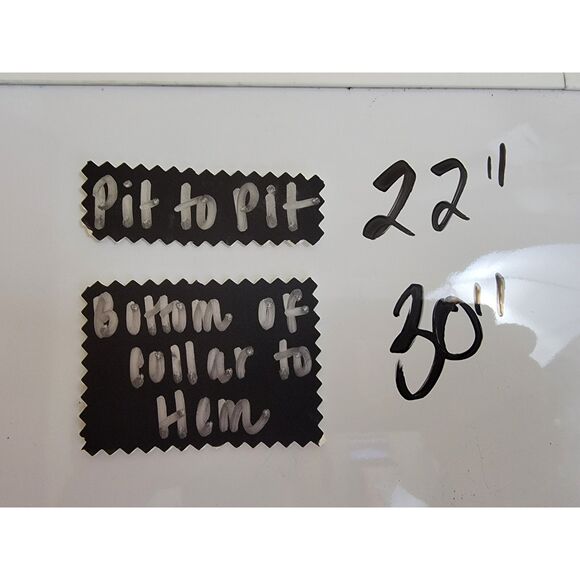 Pit to Pit 22"
Bottom of
collar to
Hem
30"